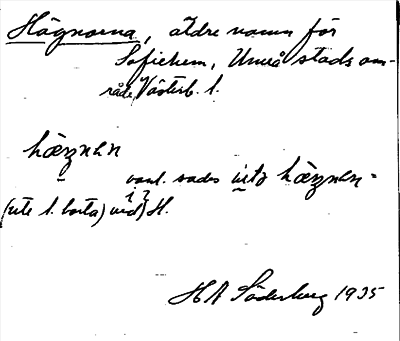 Hägnorna, äldre namn för
Sofiehem, Umeå stads om-
råde, Västerb. l.
hæŋnen
vanl. sades ute hæŋnen =
(ute l. borta) vid) H.
H A Söderberg 1935